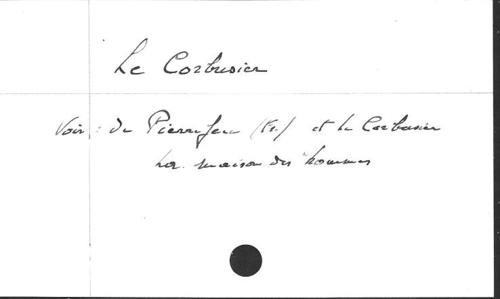 Le Corbusier
Voir : de Pierrefeu (Fr.) et Le Corbusier
La maison des hommes